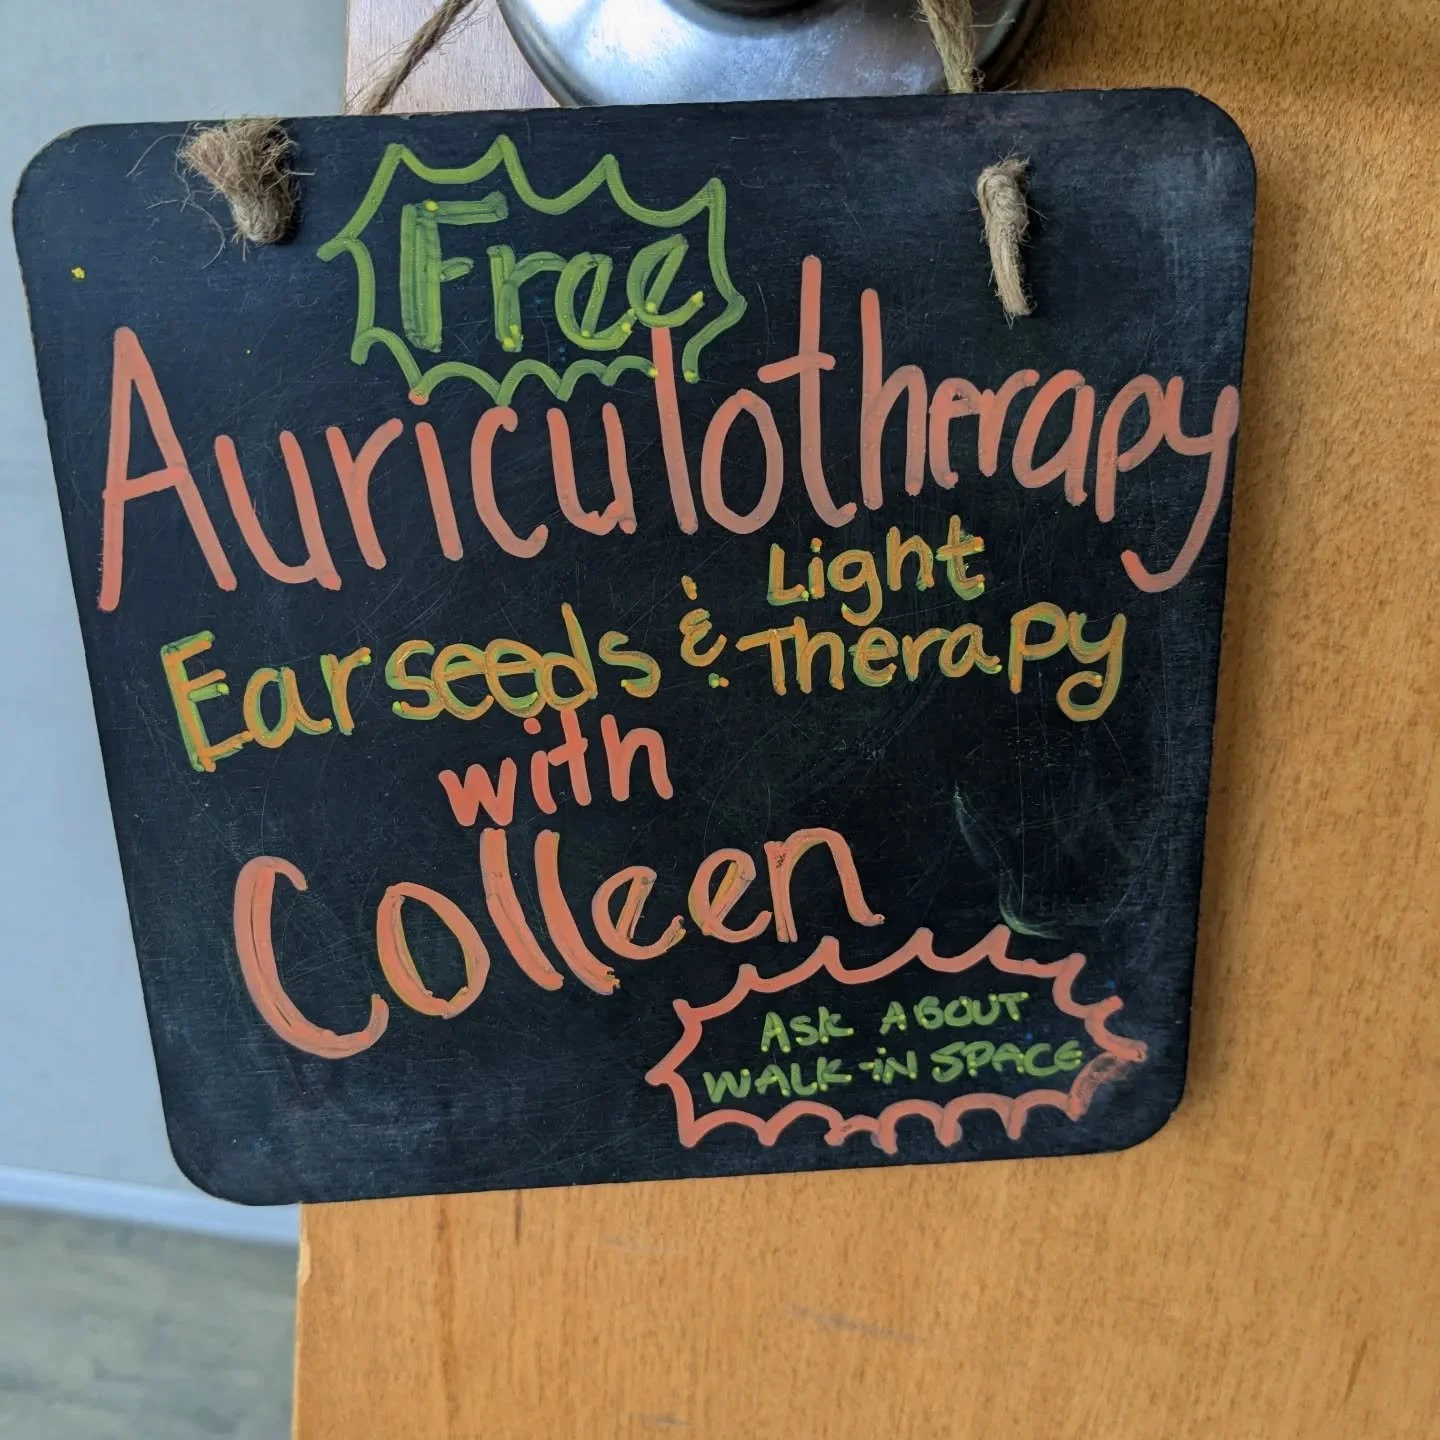 Free
Auriculotherapy
Ear seeds & Light Therapy
with
Colleen
ASK ABOUT
WALK-IN SPACE